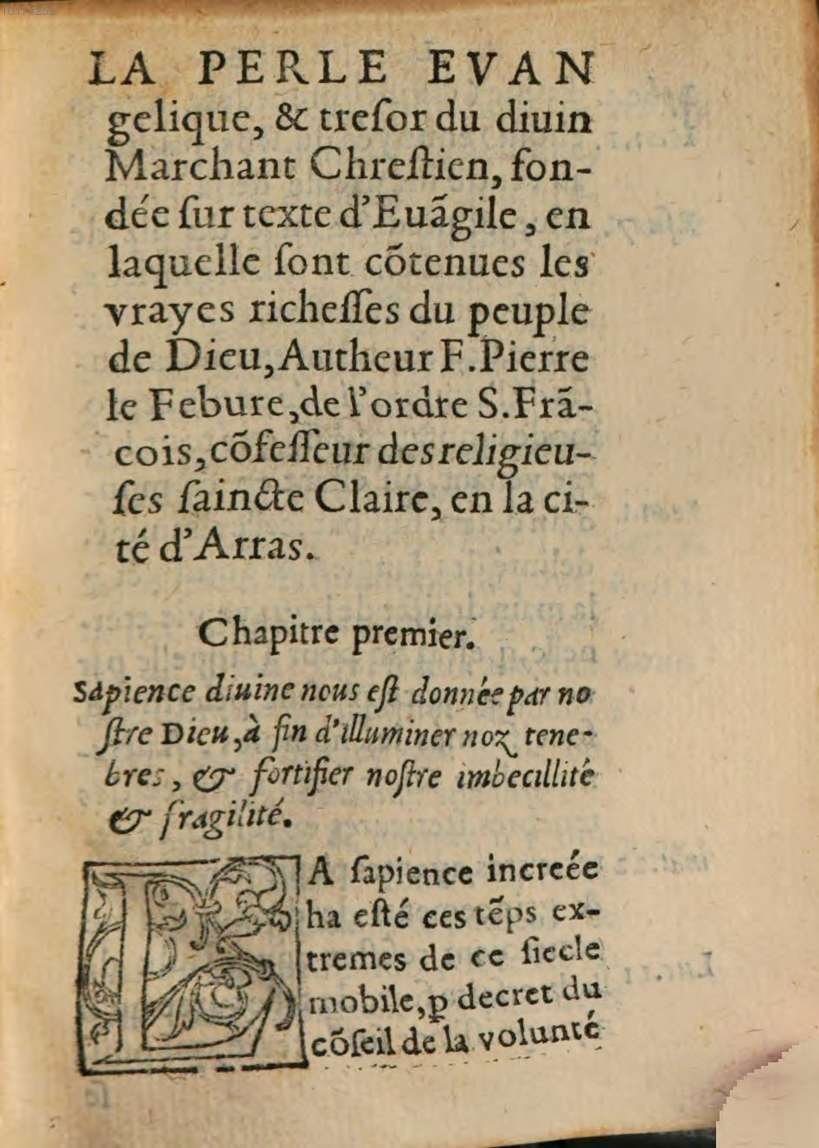 LA PERLE EVAN
gelique, & treſor du diuin
Marchant Chreſtien, fon-
dée ſur texte d'Euãgile, en
laquelle ſont cõtenues les
vrayes richeſſes du peuple
de Dieu, Autheur F. Pierre
le Febure, de l'ordre S. Frã-
cois, cõfeſſeur des religieu-
ſes ſaincte Claire, en la ci-
té d'Arras.
Chapitre premier.
Sapience diuine nous eſt donnée par no
ſtre Dieu, à fin d'illuminer noz tene-
bres, & fortifier noſtre imbecillité
& fragilité.
LA ſapience increée
ha eſté ces tẽps ex-
tremes de ce ſiecle
mobile, ꝑ decret du
cõſeil de la volunté